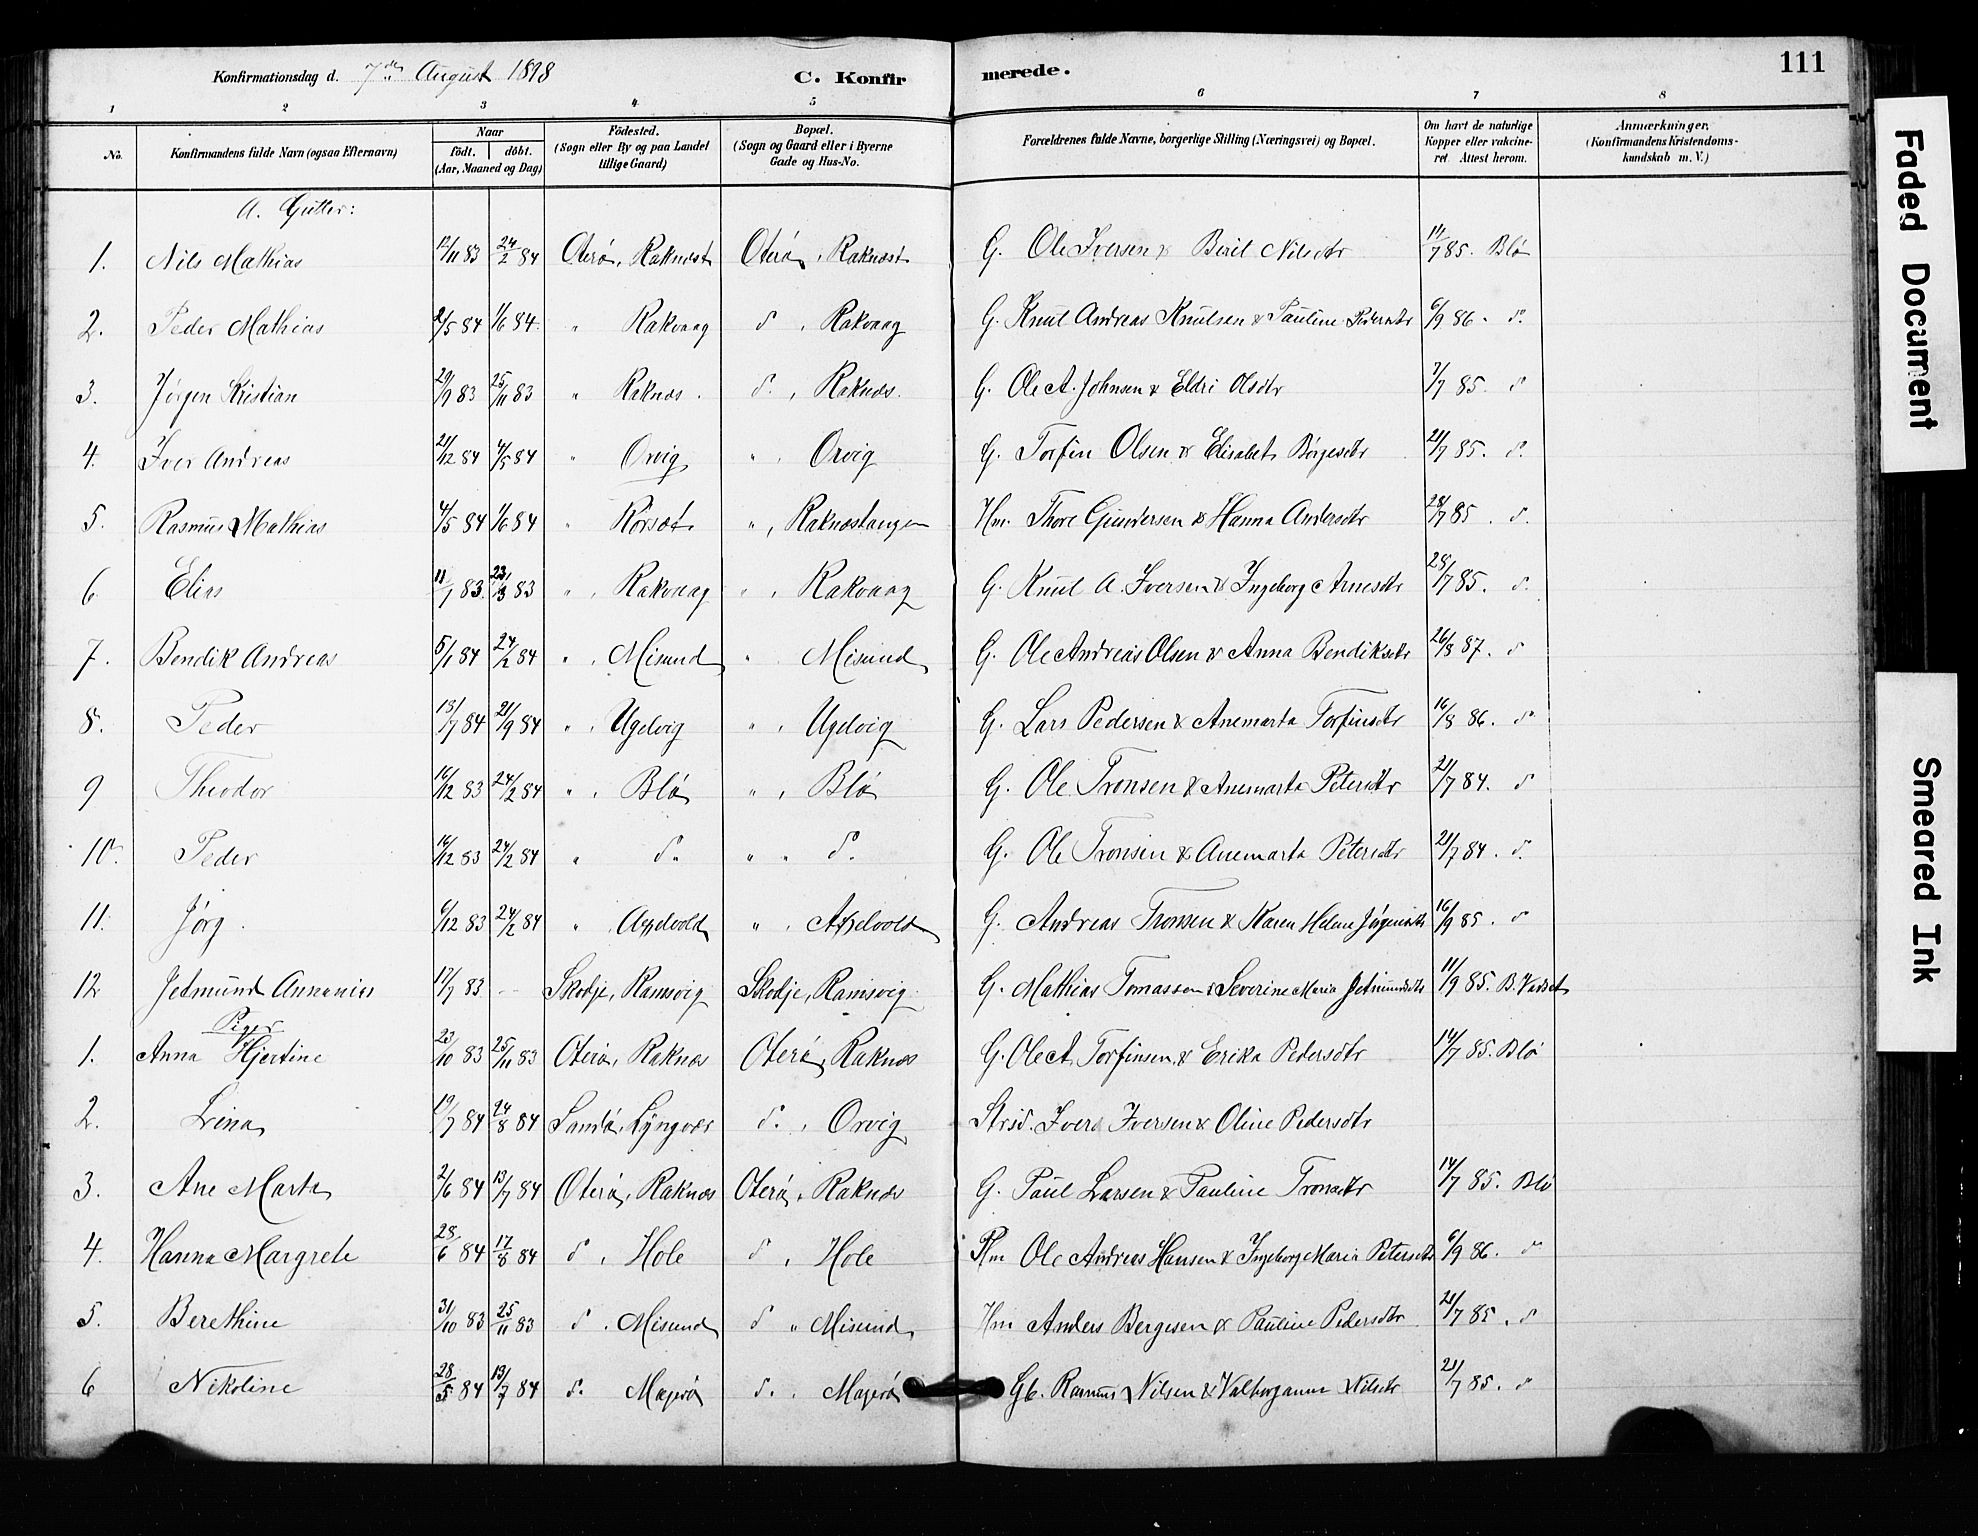 Konfirmationsdag d. 7de August 1898 C. Konfirmerede. 111
1 2 3 4 5 6 7 8
No. Konfirmandens fulde Navn (ogsaa Efternavn) Naar født. døbt. (Aar, Maaned og Dag) Fødested. (Sogn eller By og paa Landet tillige Gaard) Bopæl. (Sogn og Gaard eller i Byerne Gade og Hus-No. Forældrenes fulde Navne, borgerlige Stilling (Næringsvei) og Bopæl. Om havt de naturlige Kopper eller vakcineret. Attest herom. Anmærkninger. (Konfirmandens Kristendomskundskab m. V.)
A. Gutter:
1. Nils Mathias 12/11 83 24/2 84 Oterø, Raknæst Oterø, Raknæst G. Ole Iversen & Berit Nilsdtr 11/7 85. Blø
2. Peder Mathias 2/5 84 1/6 84 " Rakvaag d, Rakvaag G. Knut Andreas Knutsen & Pauline Pedersdtr 6/9 86. d.
3. Jørgen Kristian 29/9 83 25/11 83 " Raknæs. d., Raknæs. G. Ole A. Johnsen & Eldri Olsdtr 7/7 85. d
4. Iver Andreas 21/12 84 4/5 84 " Orvig " Orvig G. Torfin Olsen & Elisabet Børgesdtr 21/7 85. d.
5. Rasmus Mathias 4/5 84 1/6 84 " Rørsæt ", Raknæstangen Hm. Thore Gundersen & Hanna Andersdtr 28/7 85. d.
6 Elias 11/1 83. 23/3 83 ", Rakvaag ", Rakvaag G. Knut A. Iversen & Ingeborg Arnesdtr 28/7 85. d.
7. Bendik Andreas 5/1 84 24/2 84 ", Misund " Misund G. Ole Andreas Olsen & Anna Bendiksdtr 26/8 87. d
8. Peder 13/7 84 21/9 84 ", Ugelvig ", Ugelvig G. Lars Pedersen & Anemarta Torfinsdtr 16/8 86. d
9 Theodor 16/12 83 24/2 84 ", Blø ", Blø G. Ole Tronsen & Anemarta Petersdtr 21/7 84. d
10. Peder 16/12 83 24/2 84 " d. " " d. G. Ole Tronsen & Anemarta Petersdtr 21/7 84. d.
11. Jørg. 6/12 83 24/2 84 ", Appelvold ", Appelvold G. Andreas Tronsen & Karen Helene Jørgensdtr 16/9 85. d
12 Jetmund Annanias 17/7 83 -- Skodje, Ramsvig Skodje, Ramsvig G. Mathias Tomassen & Severine Maria Jetmundsdtr 11/9 85. B. Vadset
Piger
1. Anna Hjertine 23/10 83 25/11 83 Oterø, Raknæs Oterø, Raknæs G. Ole A. Torfinsen & Erika Pedersdtr 14/7 85. Blø
2. Lina 19/7 84 24/8 84 Sandø, Lyngvær d., Orvig Strsd. Iver Iversen & Oline Pedersdtr
3. Ane Marta 2/6 84 13/7 84 Oterø, Raknæs Oterø, Raknæs G. Paul Larsen & Pauline Tronsdtr 14/7 85. Blø
4. Hanna Margrete 28/6 84 17/8 84 d, Hole d, Hole Hm Ole Andreas Hansen & Ingeborg Maria Petersdtr 6/9 86. d
5. Berethine 31/10 83 25/11 83 d. Misund d " Misund Hm Anders Bergesen & Pauline Pedersdtr. 21/7 85. d
6 Nikoline 28/5 84 13/7 84 d. Magerø d., Magerø Gb. Rasmus Nilsen & Valborganne Nilsdtr 21/7 85. d
Faded Document
Smeared Ink